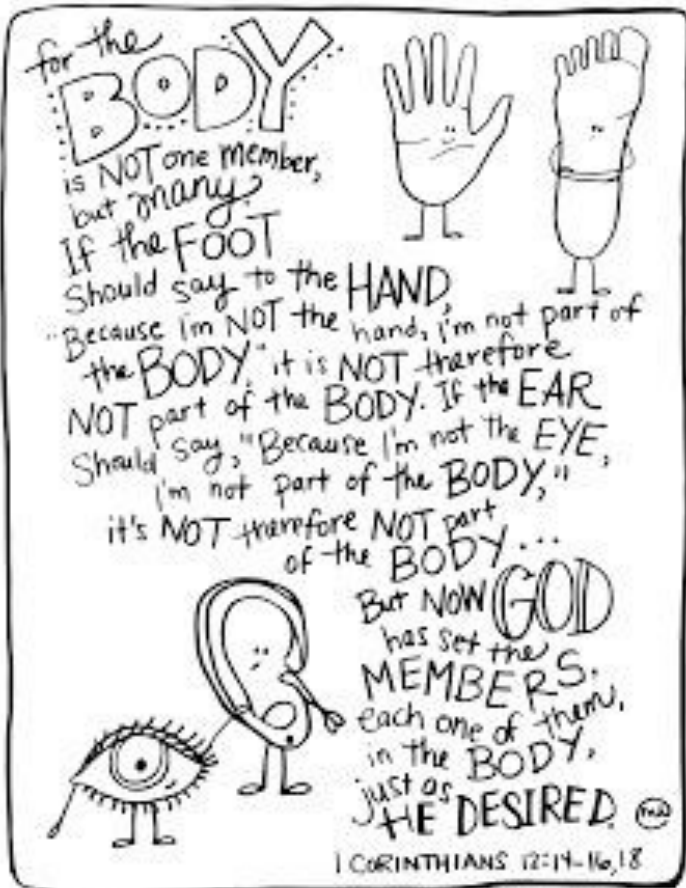 for the
BODY
is NOT one member,
but many.
If the FOOT
Should say to the HAND,
"Because i'm NOT the hand, i'm not part of
the BODY," it is NOT therefore
NOT part of the BODY. If the EAR
Should say, "Because I'm not the EYE,
I'm not part of the BODY,"
it's NOT therefore NOT part
of the BODY...
But NOW GOD
has set the
MEMBERS,
each one of them,
in the BODY,
just as
HE DESIRED.
1 CORINTHIANS 12:14-16,18